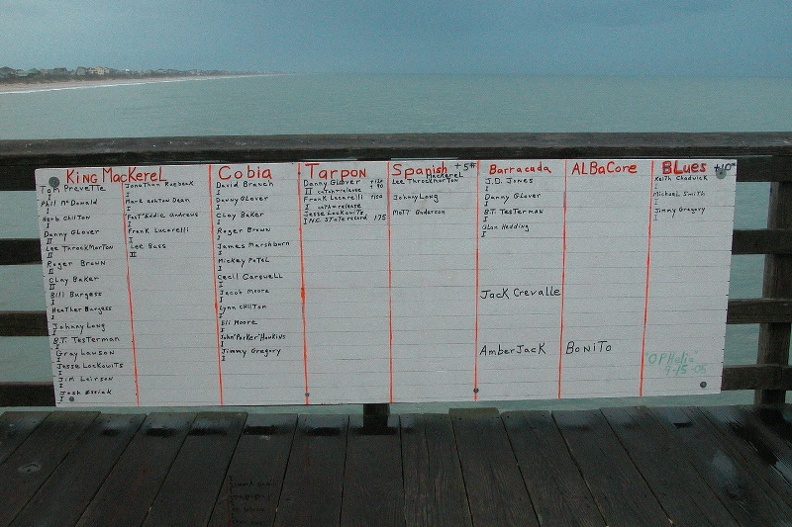 King Mackerel
Tom Prevette
I
Phil McDonald
I
Herb Chilton
I
Danny Glover
II
Lee Throckmorton
II
Roger Brown
II
Clay Baker
II
Bill Burgess
I
Heather Burgess
I
Johnny Long
I
B.T. Testerman
I
Gray Lawson
I
Jesse Lockowits
I
Jim Lairson
I
Josh
I
Jonathan Roebuck
I
Mark Ashton Dean
I
"Fast" Eddie Andrews
I
Frank Lucarelli
I
Lee Bass
II
Cobia
David Branch
I
Danny Glover
I
Clay Baker
I
Roger Brown
I
James Marshburn
I
Mickey Patel
I
Cecil Carswell
I
Jacob Moore
I
Lynn Chilton
I
Eli Moore
I
John "Porker" Hawkins
I
Jimmy Gregory
I
Tarpon
Danny Glover
II catch-release
Frank Lucarelli
I catch-release
Jesse Lockowits
I N.C. State record 175
Spanish +5#
Mackerel
Lee Throckmorton
I
Johnny Long
I
Matt Anderson
Barracada
J.D. Jones
I
Danny Glover
I
B.T. Testerman
I
Alan Hedding
I
Jack Crevalle
AmberJack
ALBaCore
BoniTo
BLues +10#
Keith Chadwick
I
Michael Smith
I
Jimmy Gregory
I
"OPHelia"
9-15-05